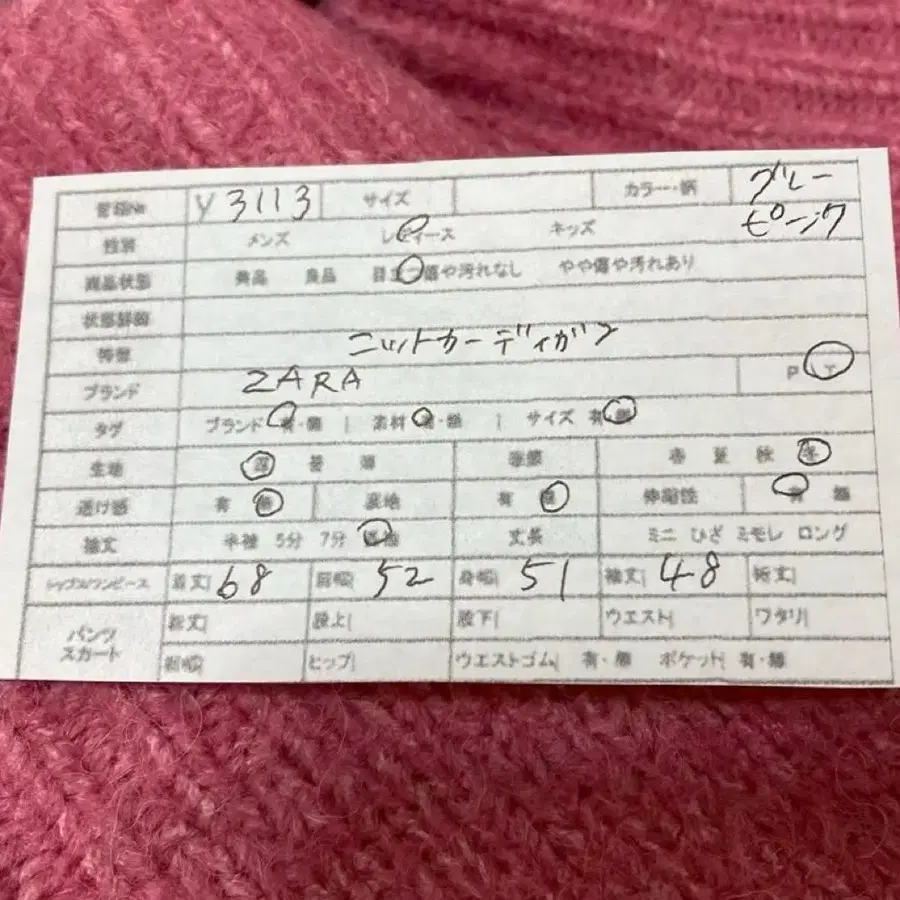 管理No Y3113 サイズ カラー・柄 グレー
ピンク
性別 メンズ レディース キッズ
商品状態 美品 良品 目立つ傷や汚れなし やや傷や汚れあり
状態詳細
特徴 ニットカーディガン
ブランド ZARA P T
タグ ブランド 有・無 | 素材 有・無 | サイズ 有・無
生地 厚 普 薄 季節 春 夏 秋 冬
透け感 有 無 裏地 有 無 伸縮性 有 無
袖丈 半袖 5分 7分 長袖 丈長 ミニ ひざ ミモレ ロング
トップス/ワンピース 着丈| 68 肩幅| 52 身幅| 51 袖丈| 48 裄丈|
パンツ
スカート
総丈| 股上| 股下| ウエスト| ワタリ|
裾幅| ヒップ| ウエストゴム| 有・無 ポケット| 有・無